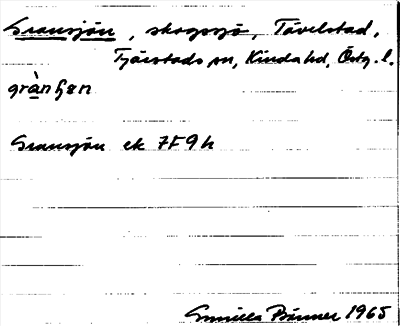 Gransjön, skogssjö, Tävelstad,
Tjärstads sn, Kinda hd, Östg. l.
grànʃøn
Gransjön ek 7F9h
Gunilla Bärmer 1965